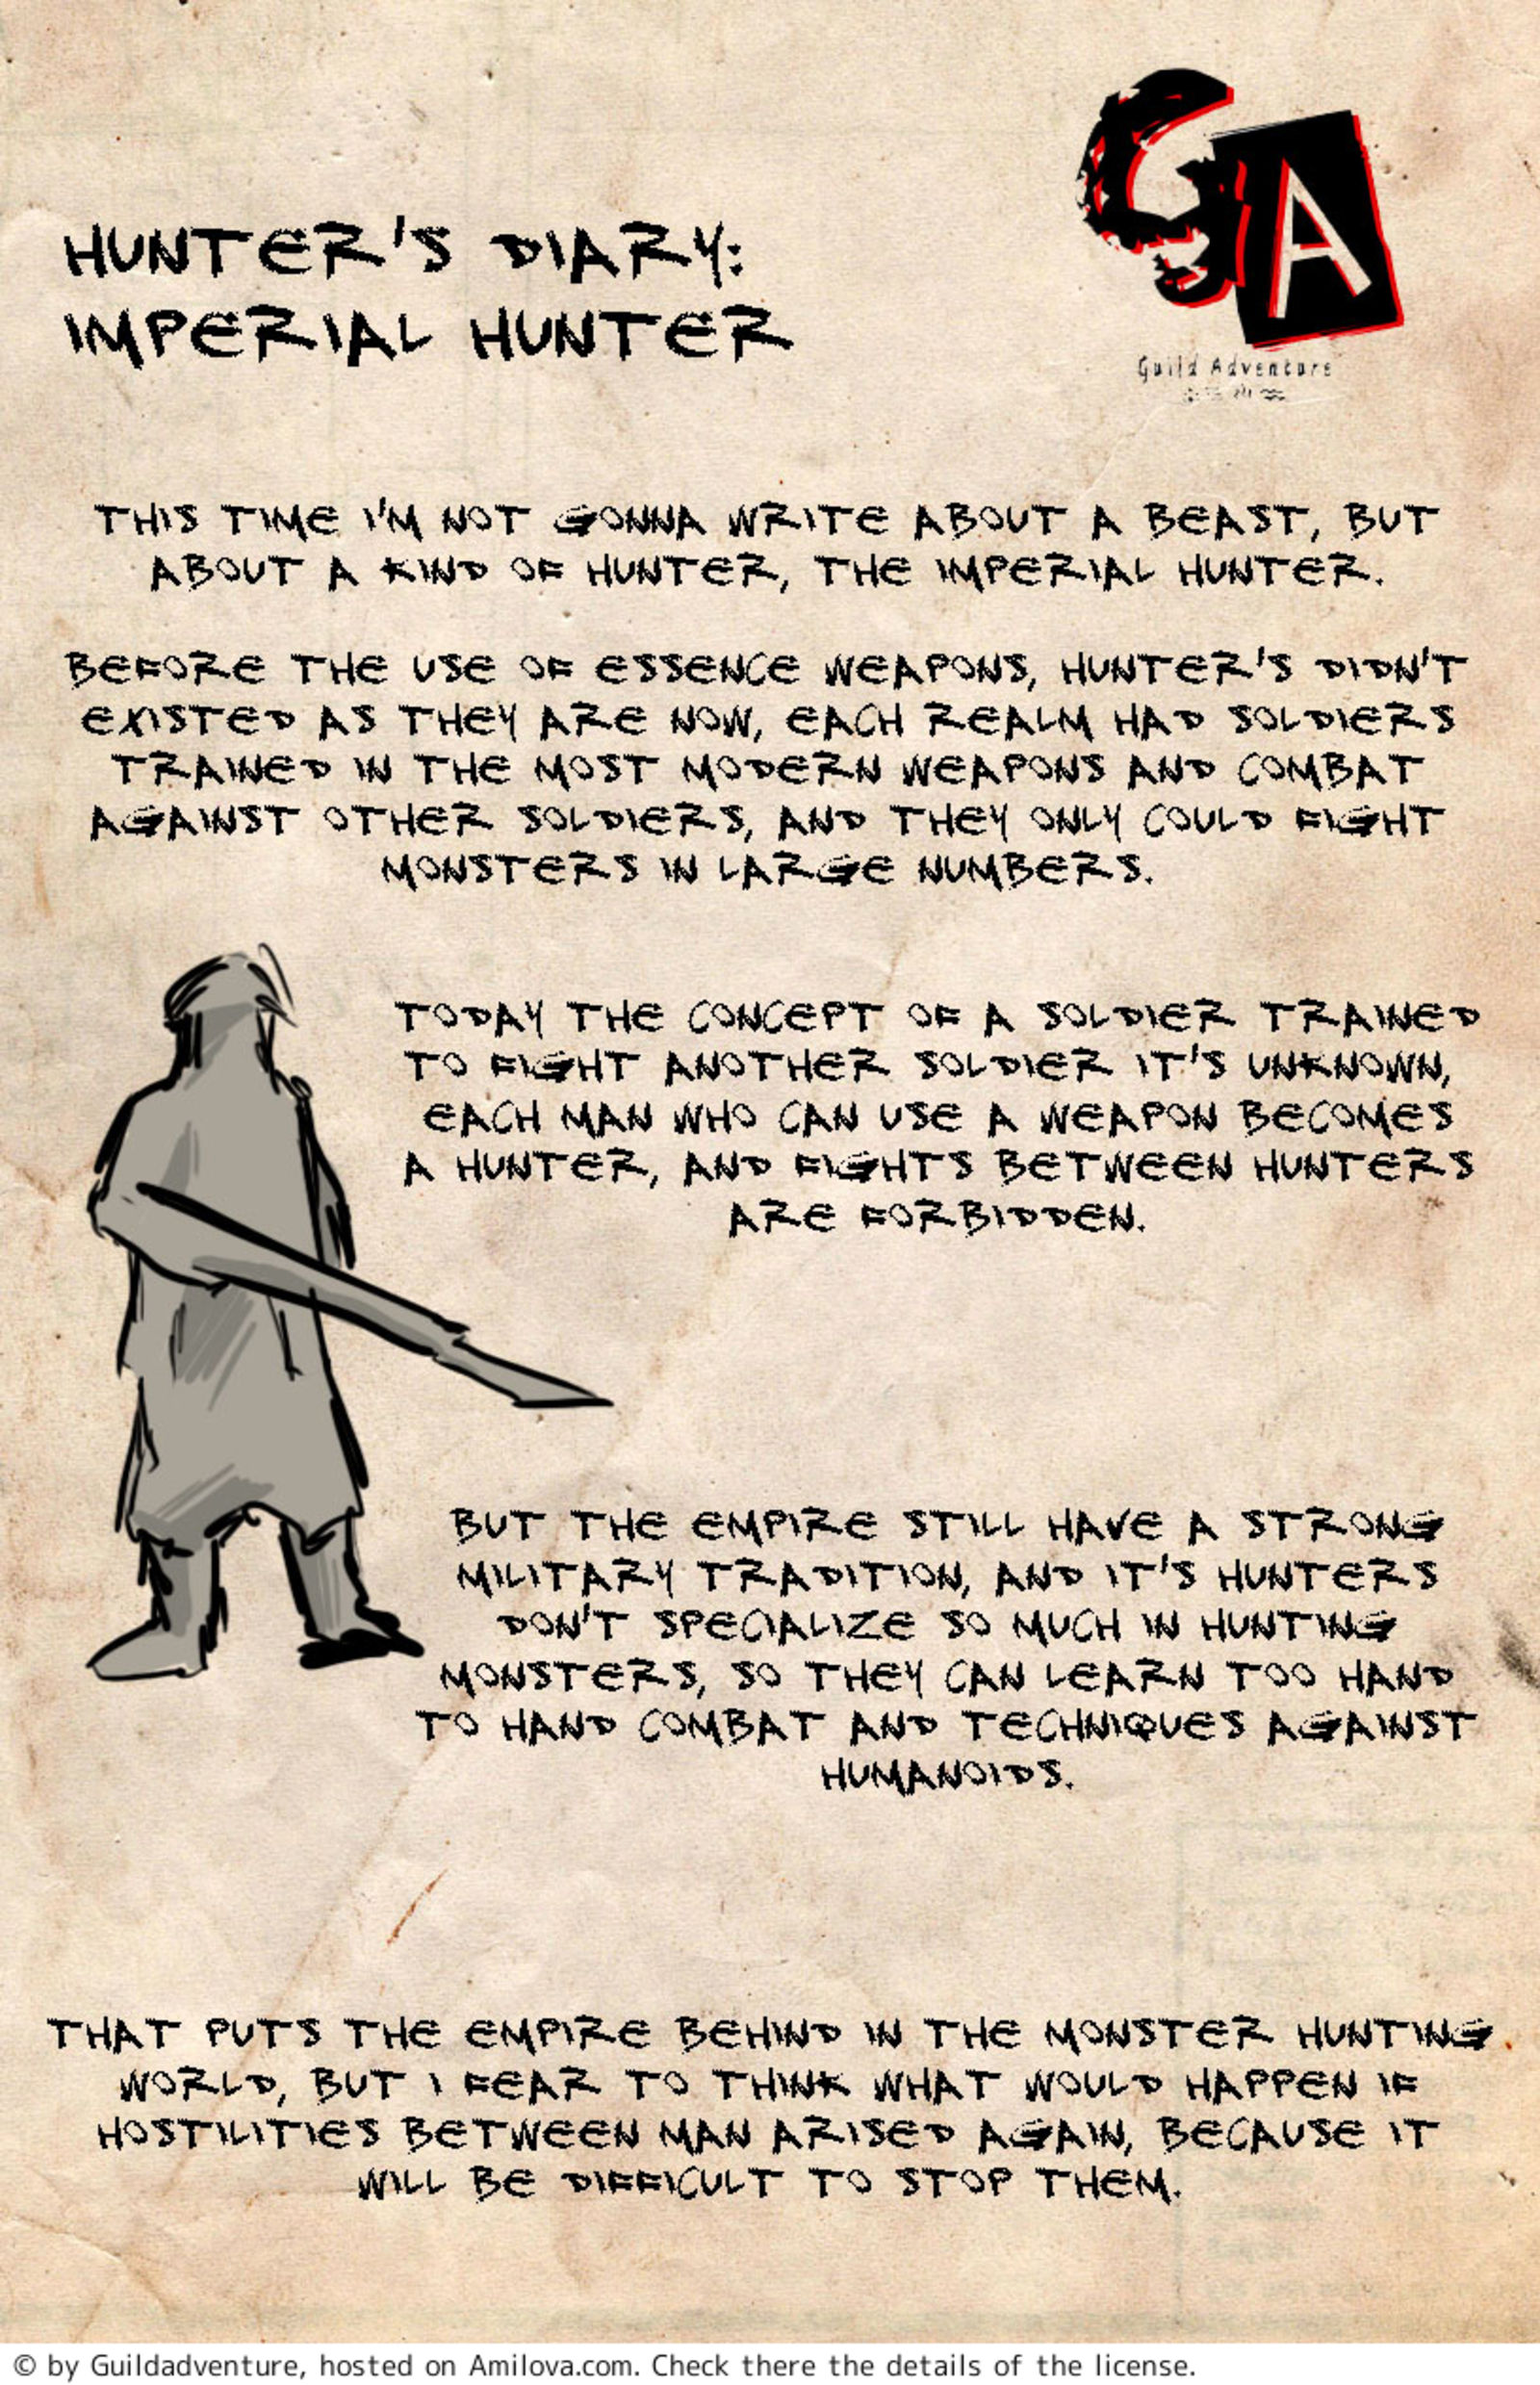 HUNTER'S DIARY:
IMPERIAL HUNTER
GA
Guild Adventure
THIS TIME I'M NOT GONNA WRITE ABOUT A BEAST, BUT
ABOUT A KIND OF HUNTER, THE IMPERIAL HUNTER.
BEFORE THE USE OF ESSENCE WEAPONS, HUNTER'S DIDN'T
EXISTED AS THEY ARE NOW, EACH REALM HAD SOLDIERS
TRAINED IN THE MOST MODERN WEAPONS AND COMBAT
AGAINST OTHER SOLDIERS, AND THEY ONLY COULD FIGHT
MONSTERS IN LARGE NUMBERS.
TODAY THE CONCEPT OF A SOLDIER TRAINED
TO FIGHT ANOTHER SOLDIER IT'S UNKNOWN,
EACH MAN WHO CAN USE A WEAPON BECOMES
A HUNTER, AND FIGHTS BETWEEN HUNTERS
ARE FORBIDDEN.
BUT THE EMPIRE STILL HAVE A STRONG
MILITARY TRADITION, AND IT'S HUNTERS
DON'T SPECIALIZE SO MUCH IN HUNTING
MONSTERS, SO THEY CAN LEARN TOO HAND
TO HAND COMBAT AND TECHNIQUES AGAINST
HUMANOIDS.
THAT PUTS THE EMPIRE BEHIND IN THE MONSTER HUNTING
WORLD, BUT I FEAR TO THINK WHAT WOULD HAPPEN IF
HOSTILITIES BETWEEN MAN ARISED AGAIN, BECAUSE IT
WILL BE DIFFICULT TO STOP THEM.
© by Guildadventure, hosted on Amilova.com. Check there the details of the license.